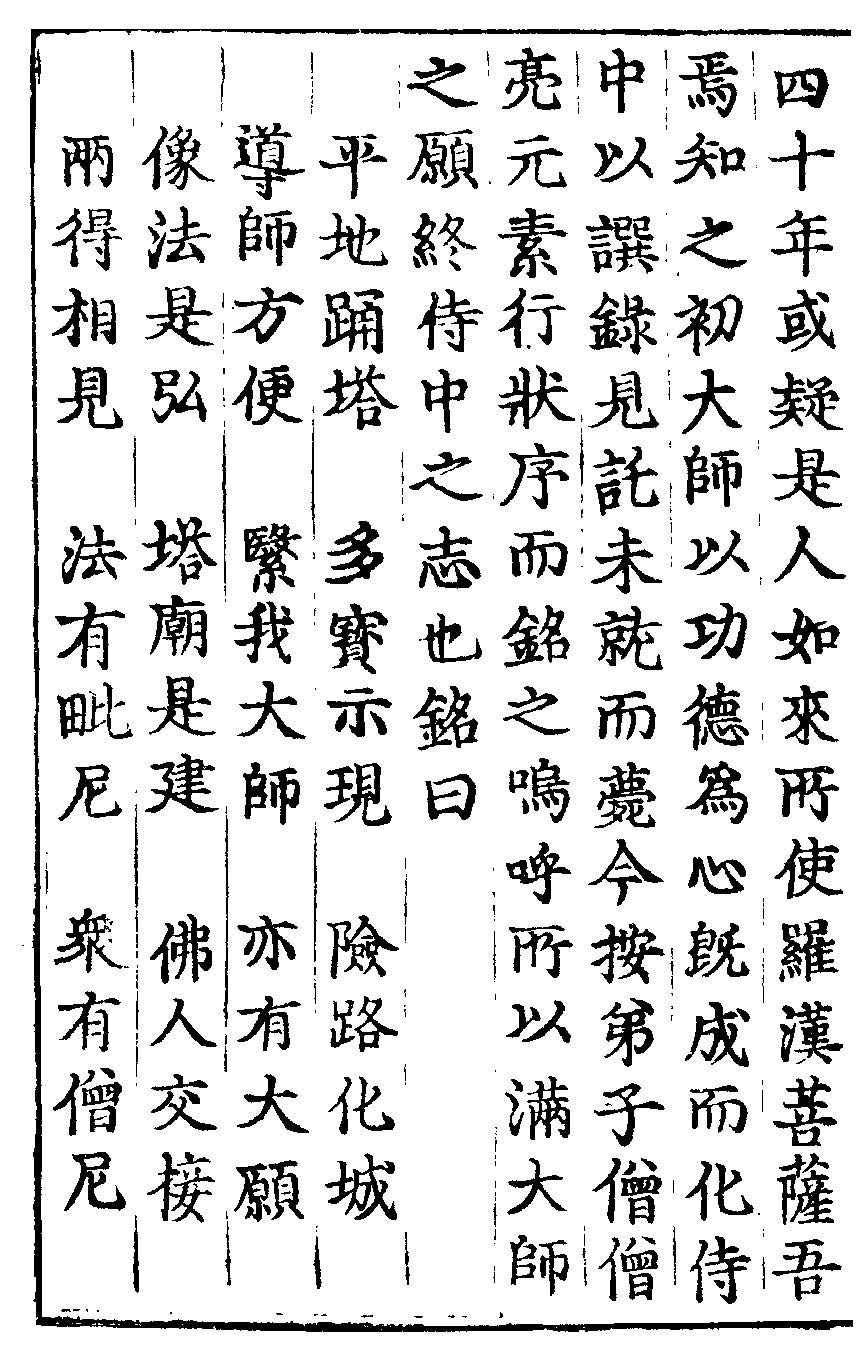 四十年或疑是人如來所使羅漢菩薩吾
焉知之初大師以功德爲心既成而化侍
中以譔錄見託未就而薨今按弟子僧僧
亮元素行狀序而銘之嗚呼所以滿大師
之願終侍中之志也銘曰
平地踊塔　多寶示現　險路化城
導師方便　繄我大師　亦有大願
像法是弘　塔廟是建　佛人交接
兩得相見　法有毗尼　衆有僧尼